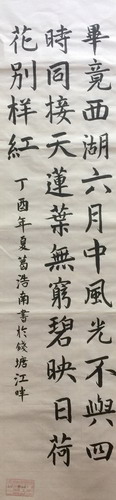 畢竟西湖六月中風光不與四
時同接天蓮葉無窮碧映日荷
花别样紅
丁酉年夏葛浩南書於錢塘江畔